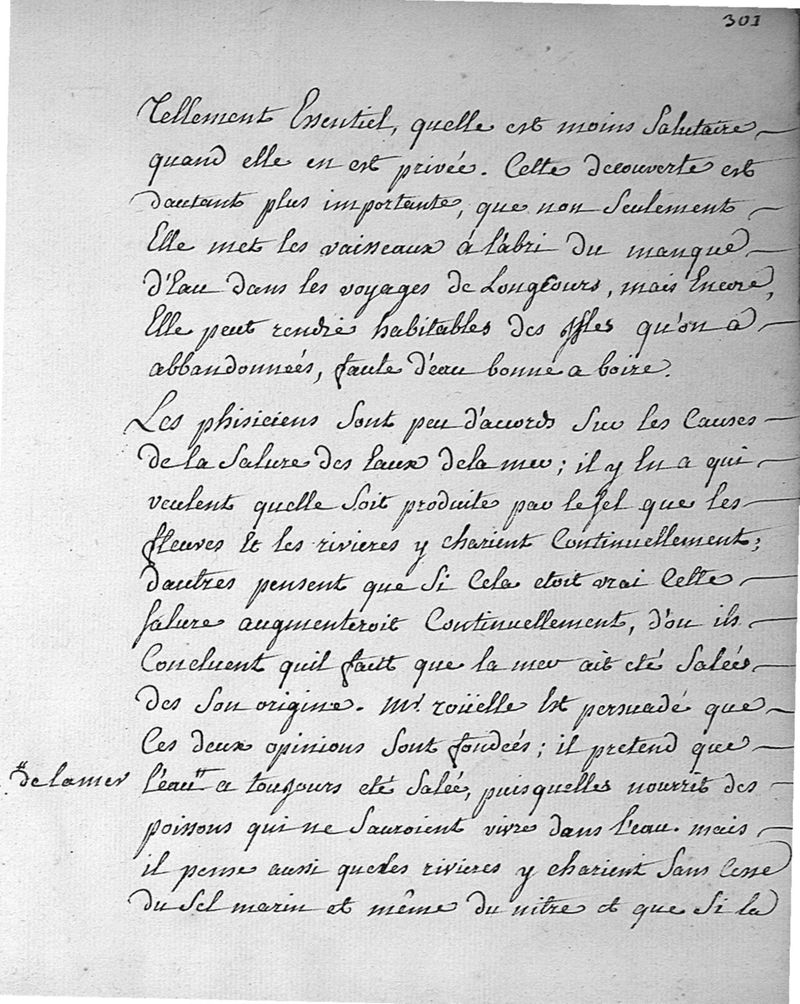 301
Tellement Essentiel, quelle est moins Salutaire
quand elle en est privée. Cette decouverte est
dautant plus importante, que non Seulement
Elle met les vaisseaux à l'abri du manque
d'Eau dans les voyages de Longcours, mais Encore,
Elle peut rendre habitables des Isles qu'on a
abbandonneés, faute d'eau bonne a boire.
Les phisiciens Sont peu d'accords Sur les Causes
de la Salure des Eaux de la mer ; il y En a qui
veulent quelle Soit produite par le sel que les
fleuves Et les rivieres y charient Continuellement ;
dautres pensent que Si Cela etoit vrai Cette
salure augmenteroit Continuellement, d'ou ils
Concluent quil faut que la mer ait eté Saleé
des Son origine. Mr. roüelle Est persuadé que
Ces deux opinions Sont fondeés ; il pretend que
"de la mer l'eau" a toujours eté Saleé, puisquelle nourrit des
poissons qui ne Sauroient vivre dans l'eau. mais
il pense aussi que les rivieres y charient Sans Cesse
du Sel marin et même du nitre et que Si la